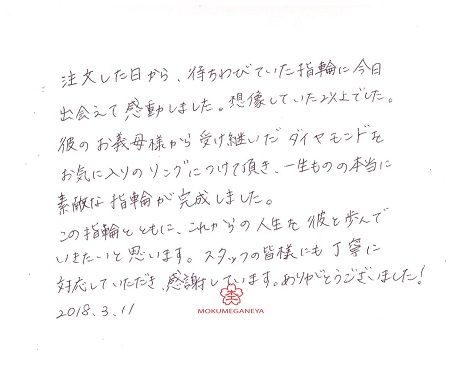 注文した日から、待ちわびていた指輪に今日
出会えて感動しました。想像していた以上でした。
彼のお義母様から受け継いだダイヤモンドを
お気に入りのリングにつけて頂き、一生ものの本当に
素敵な指輪が完成しました。
この指輪とともに、これからの人生を彼と歩んで
いきたいと思います。スタッフの皆様にも丁寧に
対応していただき、感謝しています。ありがとうございました!
2018.3.11
MOKUMEGANEYA